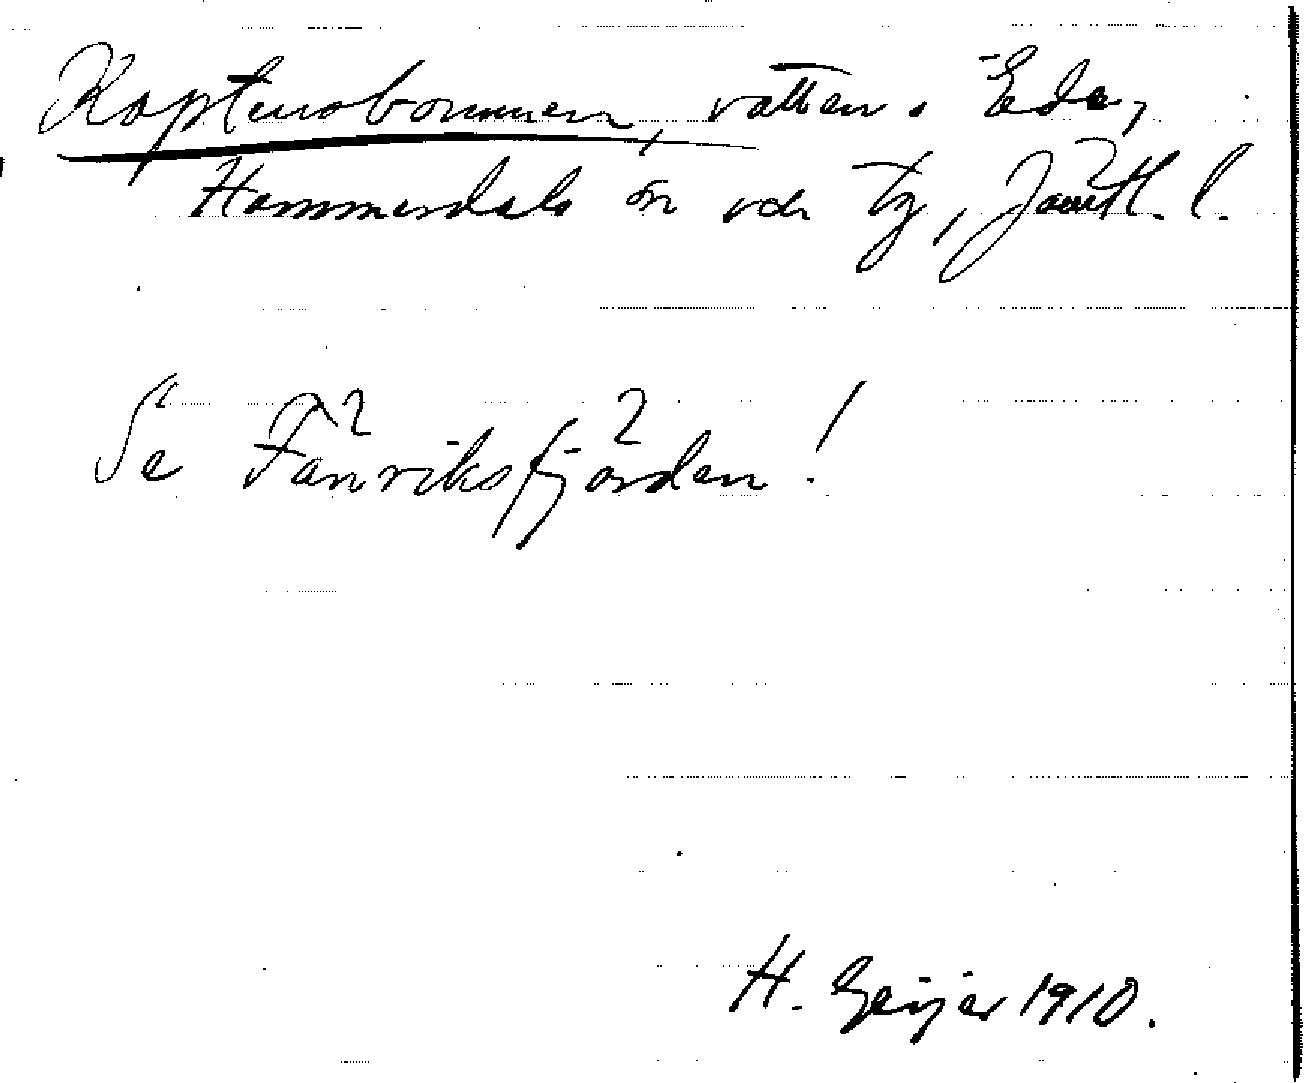 Kaptensbommen, vatten i Ede,
Hammerdals sn och tg, Jämtl. l.
Se Fänriksfjärden!
H. Geijer 1910.